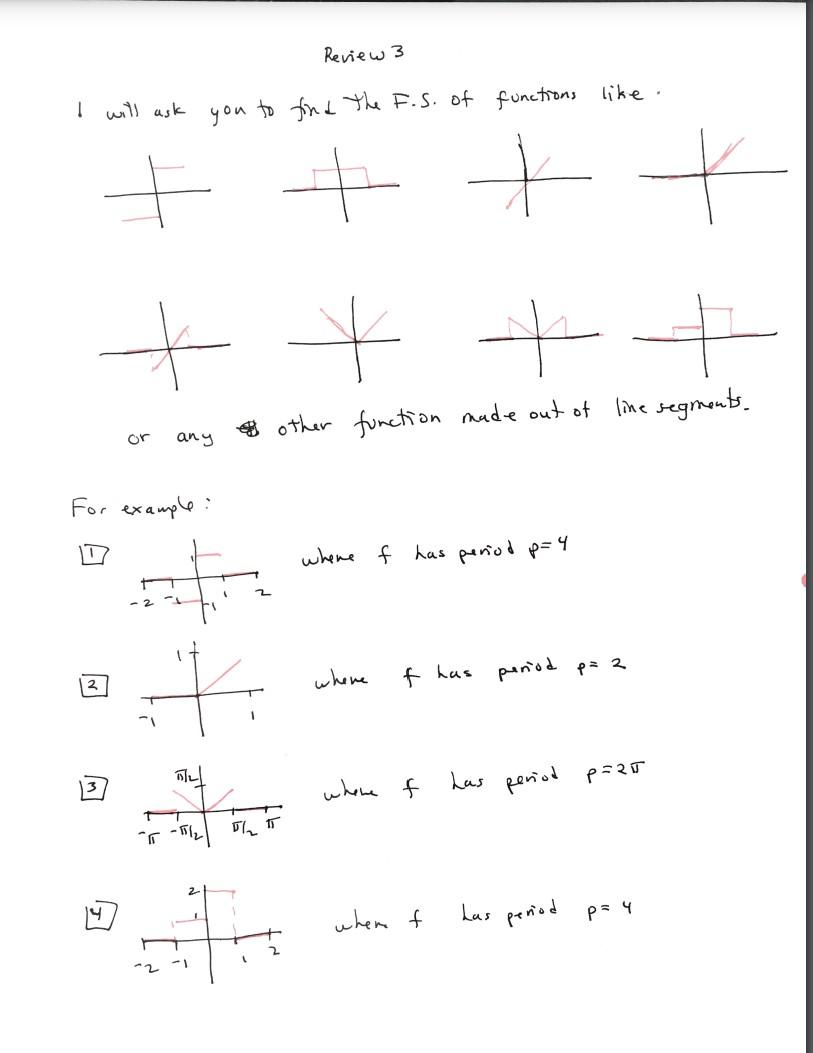 Review 3
I will ask you to find the F.S. of functions like.
or any other function made out of line segments.
For example:
1 where f has period p=4
1
-2 -1 -1 1 2
2 where f has period p= 2
1
-1 1
3 where f has period p=2π
π/2
-π -π/2 π/2 π
4 where f has period p= 4
2
1
-2 -1 1 2